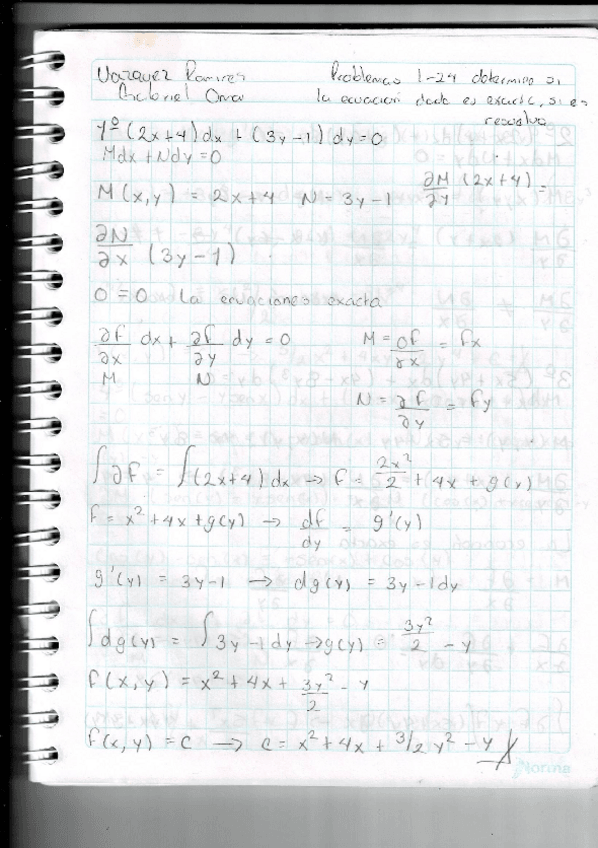 Vazquez Ramirez
Gabriel Omar
Problemas 1-24 determine si
la ecuación dada es exacta, si es
resuelva
1º (2x+4)dx + (3y-1)dy=0
Mdx+Ndy=0
M(x,y) = 2x+4 N=3y-1 ∂M/∂y (2x+4) =
∂N/∂x (3y-1)
0=0 La ecuaciones exacta
∂f/∂x dx + ∂f/∂y dy = 0 M = ∂f/∂x = fx
M N
N = ∂f/∂y = fy
∫∂f = ∫(2x+4)dx → f = 2x²/2 + 4x + g(y)
f = x² + 4x + g(y) → df/dy = g'(y)
g'(y) = 3y-1 → dg(y) = 3y-1dy
∫dg(y) = ∫3y-1dy → g(y) = 3y²/2 - y
f(x,y) = x² + 4x + 3y²/2 - y
f(x,y) = c → c = x² + 4x + 3/2 y² - y
Norma